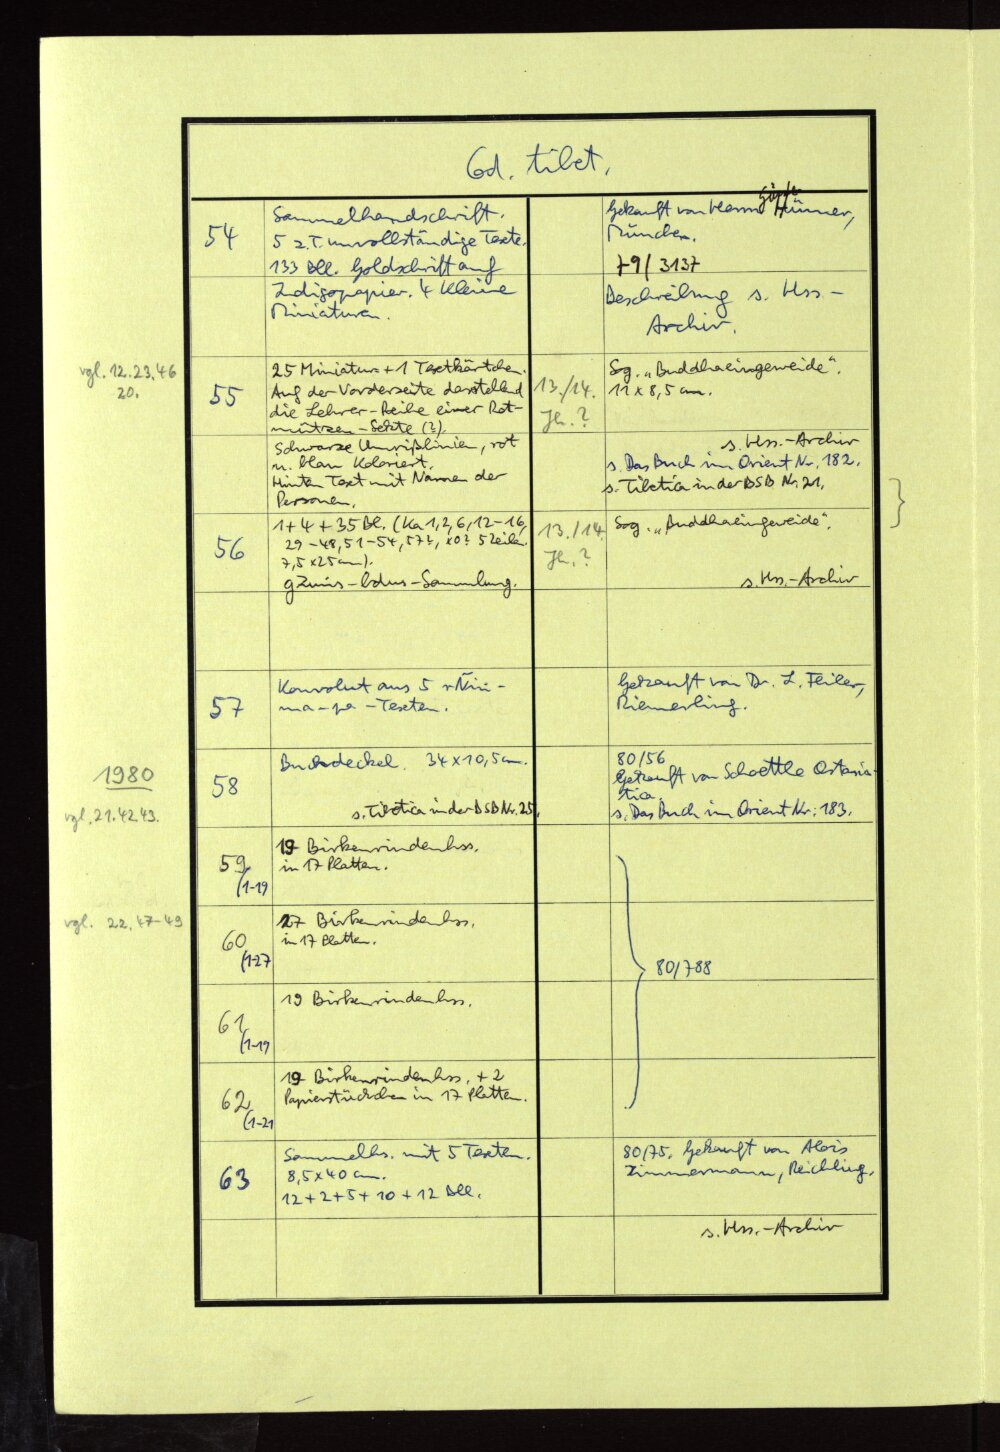 Cod. tibet.
54
Sammelhandschrift.
5 z.T. unvollständige Texte.
133 Bll. Goldschrift auf
Indigopapier. 4 kleine
Miniaturen.
Gekauft von Herrn
München.
79/3137
Beschreibung s. Hss-
Archiv.
vgl. 12.23.46
20.
55
25 Miniatur- + 1 Textkärtchen.
Auf der Vorderseite darstellend
die Lehrer-Reihe einer Rot-
mützen-Sekte (?).
Schwarze Umrißlinien, rot
u. blau koloriert.
Hinten Text mit Namen der
Personen.
13./14.
Jh.?
Sog. „Buddhaeingeweide".
11 x 8,5 cm.
s. Hss.-Archiv
s. Das Buch im Orient Nr. 182.
s. Tibetica in der BSB Nr. 21.
56
1+4+35 Bl. (Ka 1,2,6,12-16,
29-48,51-54,57?, x0? 5 Zeilen.
7,5 x 25 cm).
gZuṅs-bdus-Sammlung.
13./14.
Jh.?
Sog. „Buddhaeingeweide".
s. Hss.-Archiv
57
Konvolut aus 5 rÑiṅ-
ma-pa-Texten.
Gekauft von Dr. L. Feiler,
Riemerling.
1980
vgl. 21.42.43.
58
Buchdeckel. 34 x 10,5 cm.
s. Tibetica in der BSB Nr. 25.
80/56
Gekauft von Schoettle Ostasia-
tica.
s. Das Buch im Orient Nr. 183.
59
(1-19
19 Birkenrindenhss.
in 17 Platten.
vgl. 22.47-49
60
(1-27
27 Birkenrindenhss.
in 17 Platten.
80/788
61
(1-19
19 Birkenrindenhss.
62
(1-21
19 Birkenrindenhss. + 2
Papierstückchen in 17 Platten.
63
Sammelhs. mit 5 Texten.
8,5 x 40 cm.
12+2+5+10+12 Bll.
80/75. Gekauft von Alois
Zimmermann, Reichling.
s. Hss.-Archiv